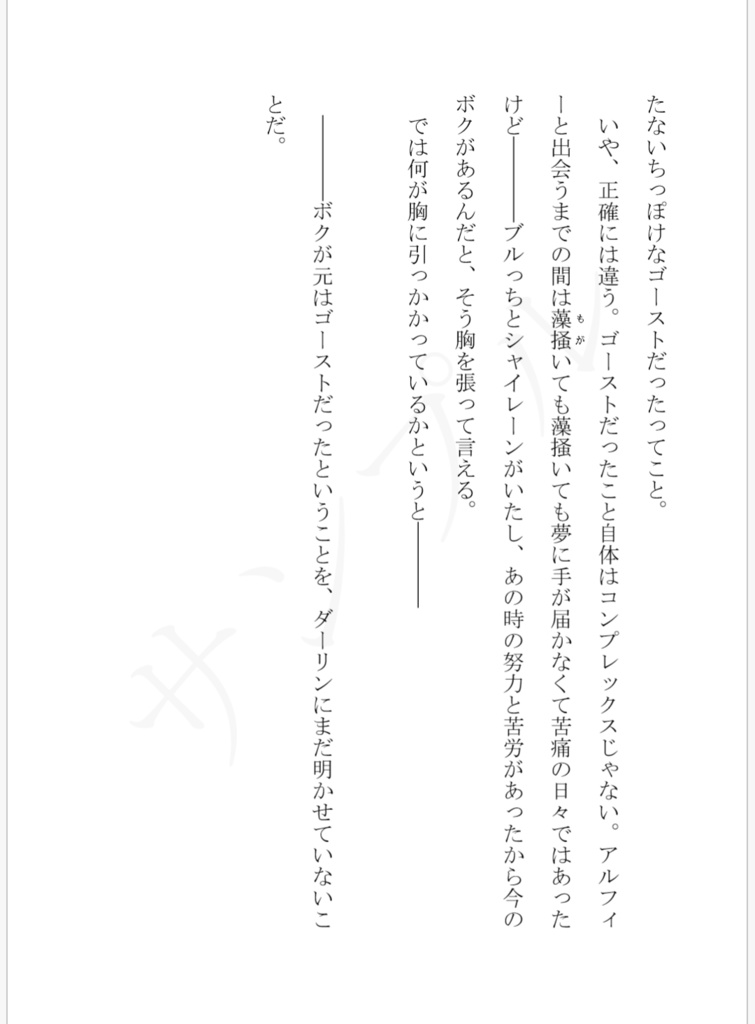 たないちっぽけなゴーストだったってこと。
　いや、正確には違う。ゴーストだったこと自体はコンプレックスじゃない。アルフィ
ーと出会うまでの間は藻掻いても藻掻いても夢に手が届かなくて苦痛の日々ではあった
もが
けど――――ブルっちとシャイレーンがいたし、あの時の努力と苦労があったから今の
ボクがあるんだと、そう胸を張って言える。
　では何が胸に引っかかっているかというと――――
　――――ボクが元はゴーストだったということを、ダーリンにまだ明かせていないこ
とだ。
サンプル